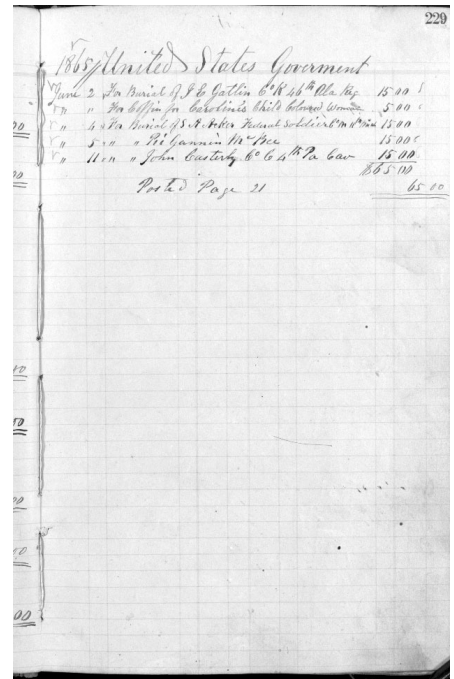 229
1865 United States Goverment
June 2 For Burial of J. C. Gatlin Co K 46th Ala Reg 15 00
" " For Coffin for Caroline's Child Colored Woman 5 00
" 4 For Burial of S A Acker Federal Soldier Co M 15 00
" 5 " " 15 00
" 11 " " John Casterly Co C 4th Pa Cav 15 00
$65 00
Posted Page 21 65 00
00
00
50
00
00